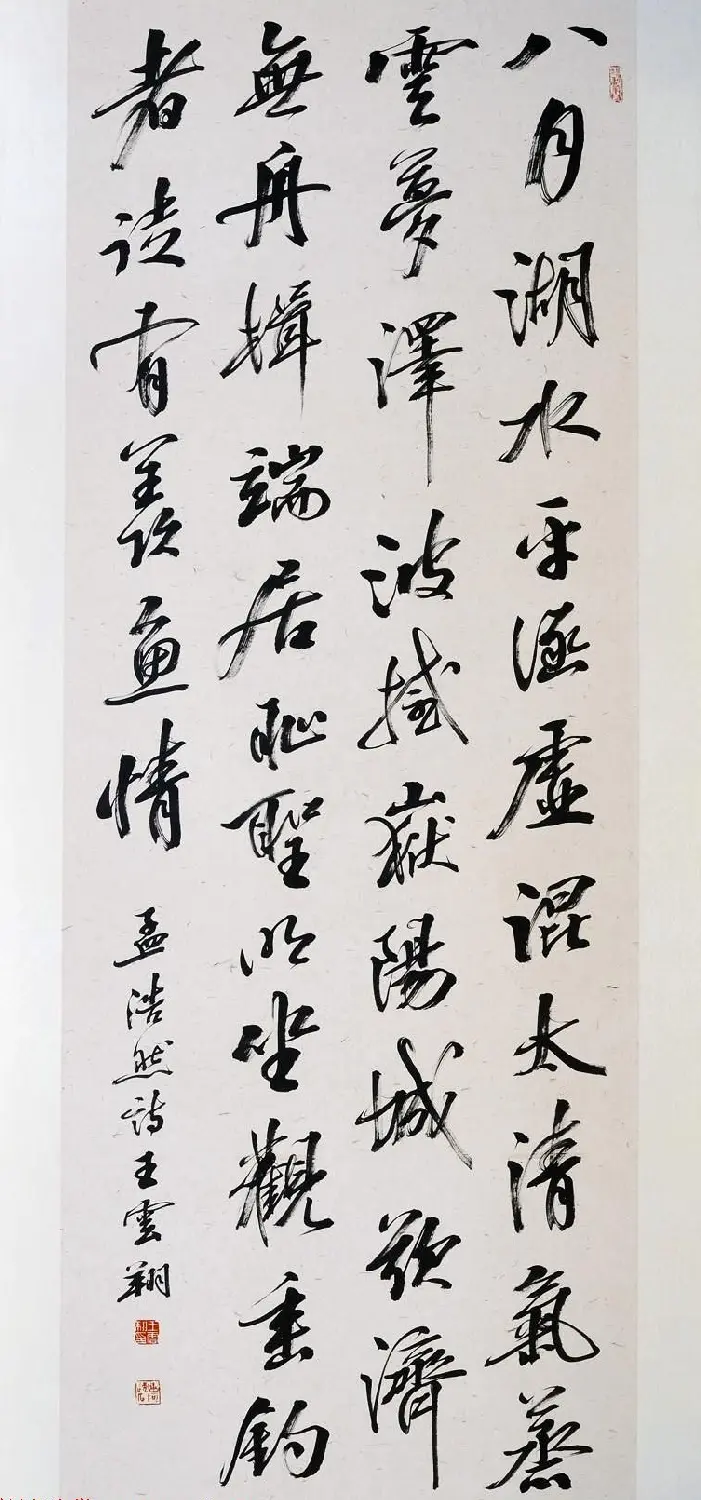 八月湖水平涵虛混太清氣蒸
雲夢澤波撼嶽陽城欲濟
無舟楫端居恥聖明坐觀垂釣
者徒有羨魚情
孟浩然詩王雲翔